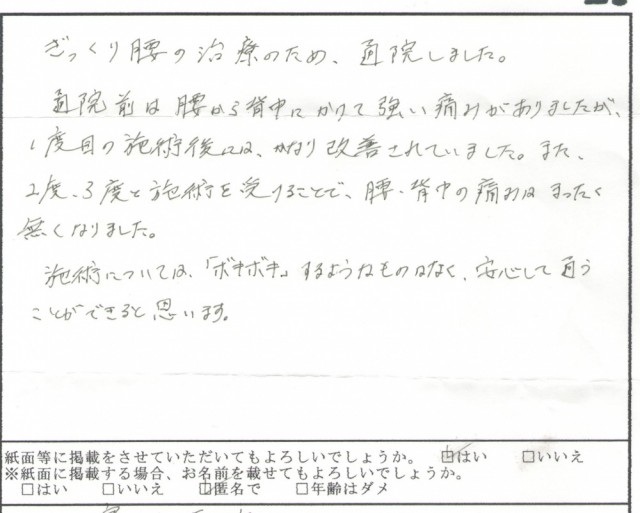 ぎっくり腰の治療のため、通院しました。
通院前は腰から背中にかけて強い痛みがありましたが、
1度目の施術後には、かなり改善されていました。また、
2度、3度と施術を受けることで、腰・背中の痛みはまったく
無くなりました。
施術については、「ボキボキ」するようなものはなく、安心して通う
ことができると思います。
紙面等に掲載をさせていただいてもよろしいでしょうか。 □はい □いいえ
※紙面に掲載する場合、お名前を載せてもよろしいでしょうか。
□はい □いいえ □匿名で □年齢はダメ